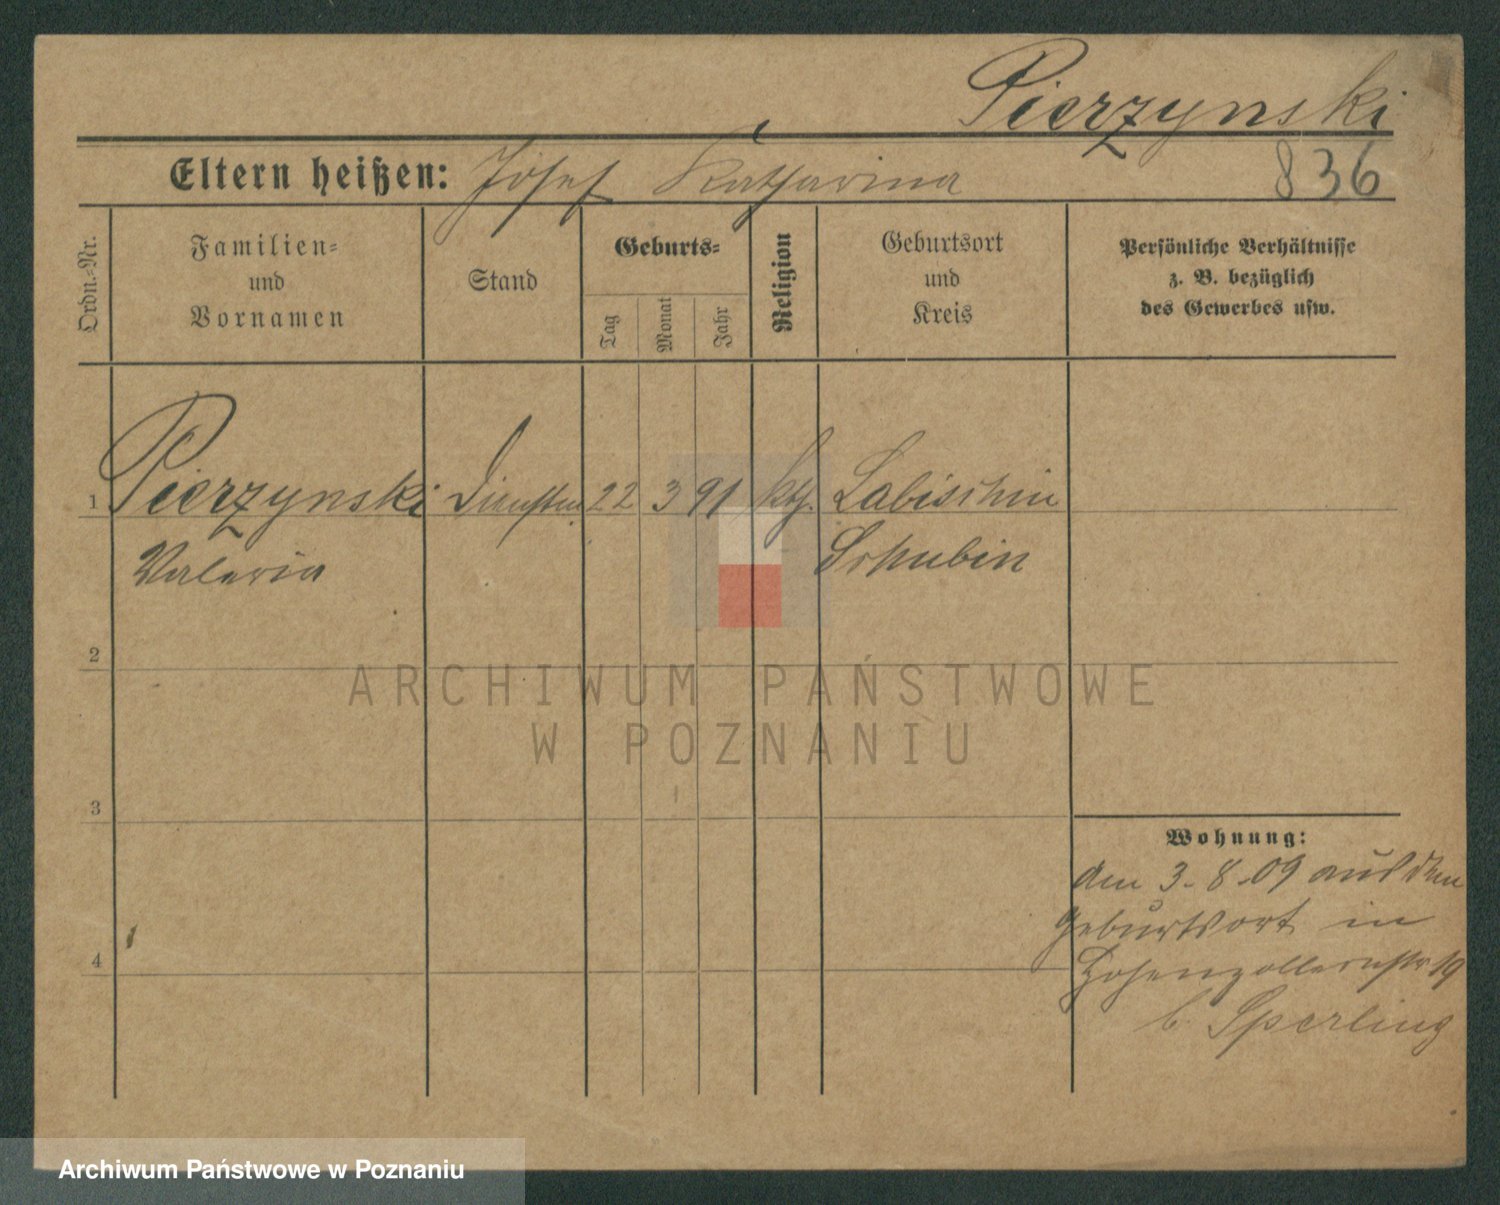 Pierzynski
Eltern heißen: Josef Katharina 836
Ordn.-Nr.
Familien-
und
Vornamen
Stand
Geburts-
Tag
Monat
Jahr
Religion
Geburtsort
und
Kreis
Persönliche Verhältnisse
z. B. bezüglich
des Gewerbes usw.
1 Pierzynski 22 3 91 kth. Labischin
Valeria Schubin
2
ARCHIWUM PAŃSTWOWE
W POZNANIU
3
Wohnung:
Am 3-8-09 aus dem
Geburtsort in
4
Hohenzollernstr 19
b. Sperling
Archiwum Państwowe w Poznaniu